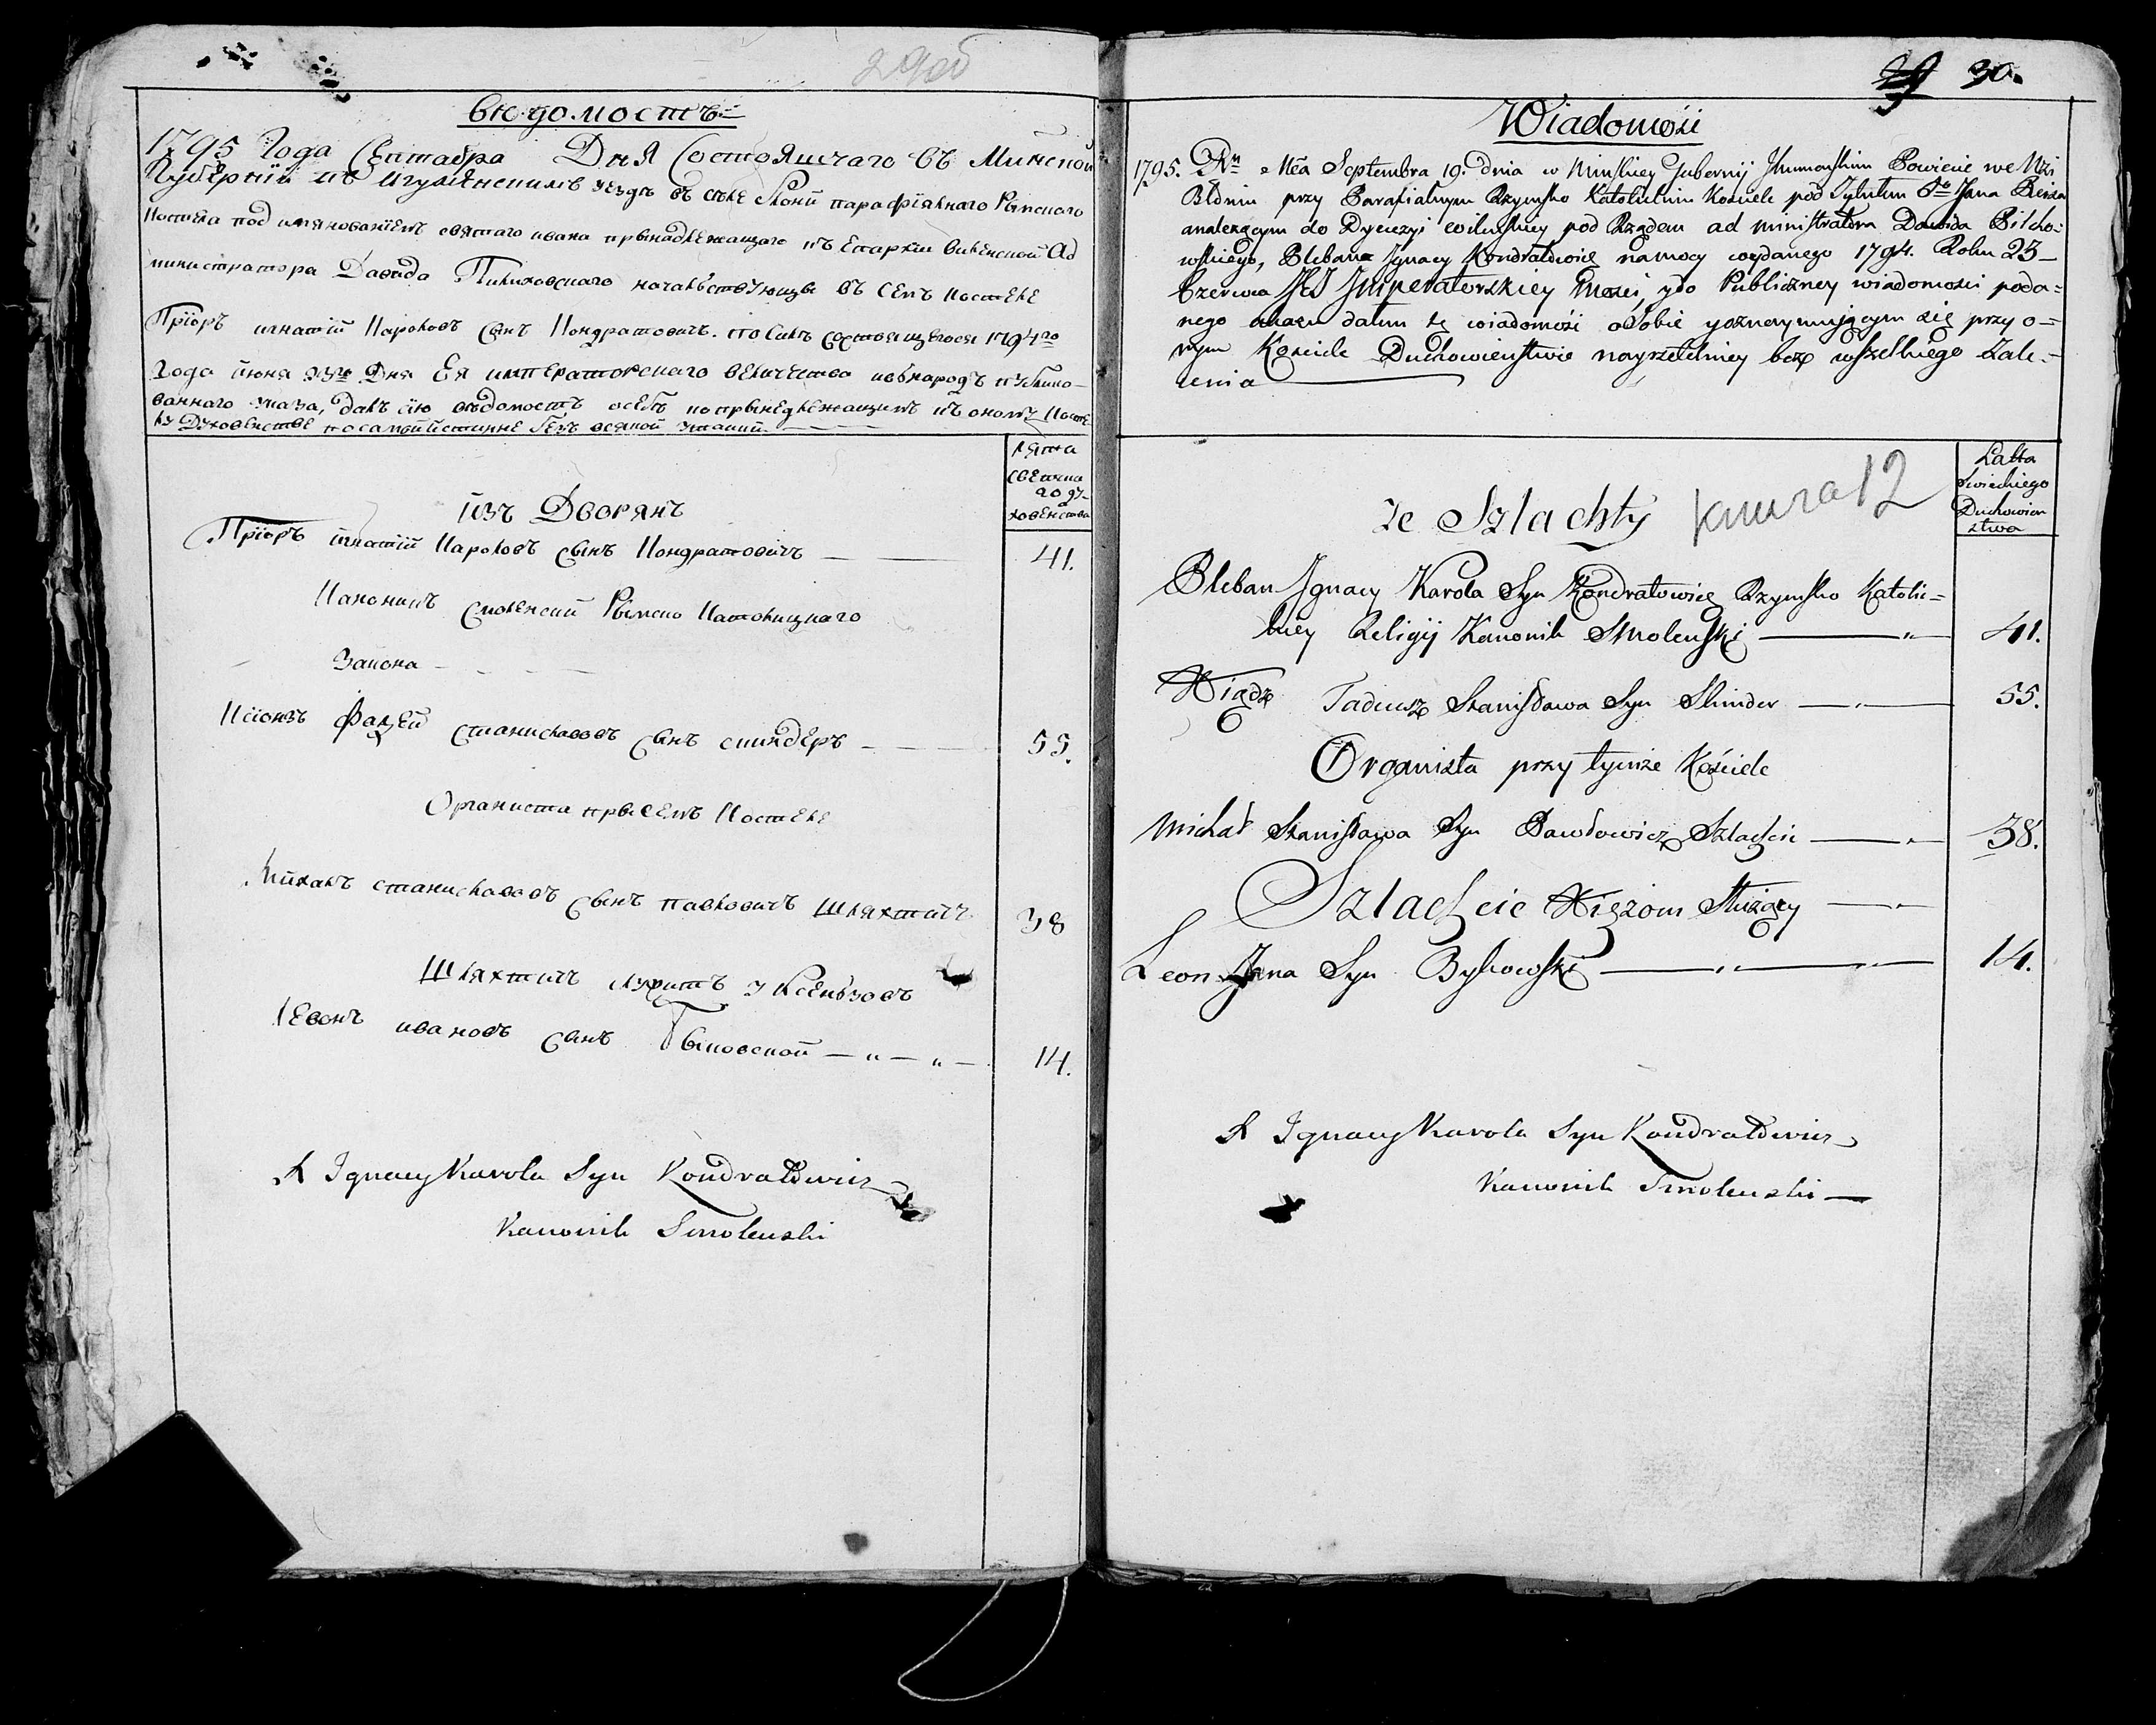 29об
вѣдомость
1795 Года Сентабра Дня Состоящаго въ Минской
Губернии въ Игуменскимъ уездѣ въ селе парафіялного Рымского
Костела под имянованіемъ святаго ивана прынадлежащаго къ Епархіи виленской Ад
министратора Давида Пилиховского началствующе въ семъ Костеле
Пріоръ игнатій Кароловъ сынъ Кондратовичъ. по силѣ состоящегося 1794го
Года июня 23го Дня Ея императорского величества въ народъ публико-
ванного указа, далъ сію ведомость о себѣ и о прынадлежащимъ къ оному Косте
лу Духовенстве по самой истинне безъ всякой утайки
лѣта
свецкаго духовенства
изъ Дворянъ
Пріоръ игнатій Кароловъ сынъ Кондратовичъ 41.
Каноникъ смоленский Рымско Католицкаго
Закона
Ксіонзъ Фадей станиславовъ сынъ слиндеръ 55.
Органиста при семъ Костеле
Михалъ станиславовъ сынъ павловичъ шляхтичъ 38
Шляхтичъ служитъ у Ксендзовъ
Левонъ ивановъ сынъ Быковской 14.
X Ignacy Karola Syn Kondratowicz
Kanonik Smolenski
29 30.
Wiadomości
1795. Ru Mca Septembra 19. dnia w Minskiey Gubernij Jhumenskim Powiecie we Wsi
Błoniu przy Parafialnym Rzymsko Katolickim Kościele pod Tytułem Sgo Jana
należącym do Dyecezyi wilenskiey pod Rządem ad ministratora Dawida Pilcho-
wskiego, Pleban Jgnacy Kondratowicz na mocy wydanego 1794. Roku 23
Czerwca JeJ Jmperatorskiey Mości, y do Publiczney wiadomości poda-
nego ukazu datum tę wiadomość o Sobie y o znayduiącym się przy o-
nym Kościele Duchowienstwie nayrzetelniey bez wszelkiego Zata-
ienia
Latta
świeckiego
Duchowien
stwa
ze Szlachty книга 12
Pleban Jgnacy Karola Syn Kondratowicz Rzymsko Katolic-
kiey Religij Kanonik Smolenski 41.
Xiądz Tadeusz Stanisława Syn Slinder 55.
Organista przy tymże Kościele
Michał Stanisława Syn Pawłowicz Szlachcic 38.
Szlachcic Xięzom Służący
Leon Jana Syn Bykowski 14.
X Ignacy Karola Syn Kondratowicz
Kanonik Smolenski